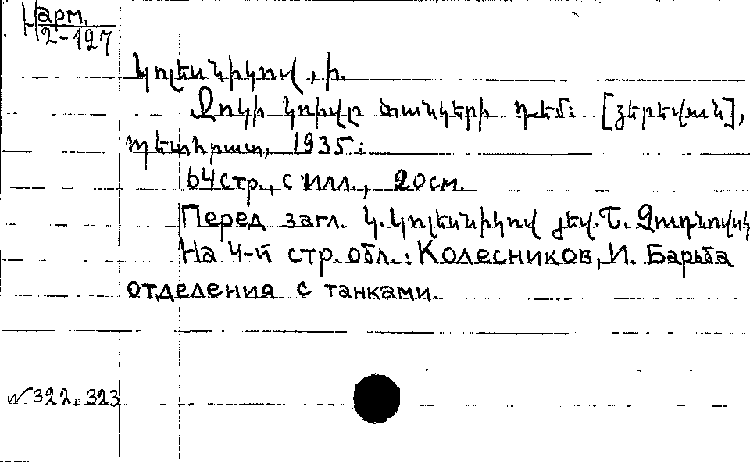 Нарм.
2-127
Կոլեսնիկով, Ի.
Ջոկի կռիվը տանկերի դեմ: [Յերեվան],
Պետհրատ, 1935:
64 стр., с илл., 20 см.
Перед загл. Կ. Կոլեսնիկով յեվ. Շ.
На 4-й стр. обл.: Колесников, И. Барьба
отделения с танками.
N 322. 323